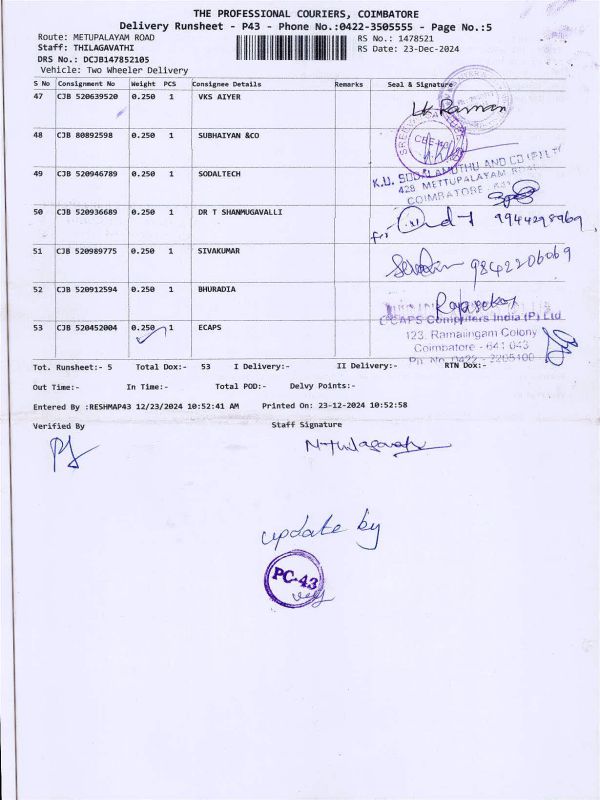 THE PROFESSIONAL COURIERS, COIMBATORE
Delivery Runsheet - P43 - Phone No.:0422-3505555 - Page No.:5
Route: METUPALAYAM ROAD
RS No.: 1478521
Staff: THILAGAVATHI
RS Date: 23-Dec-2024
DRS No.: DCJB147852105
Vehicle: Two Wheeler Delivery
S No Consignment No Weight PCS Consignee Details Remarks Seal & Signature
47 CJB 520639520 0.250 1 VKS AIYER
48 CJB 80892598 0.250 1 SUBHAIYAN &CO
49 CJB 520946789 0.250 1 SODALTECH
K.U. SODALAMUTHU AND CO (P) LTD
428, METTUPALAYAM ROAD
COIMBATORE
50 CJB 520936689 0.250 1 DR T SHANMUGAVALLI
9944298969
51 CJB 520989775 0.250 1 SIVAKUMAR
9842206069
52 CJB 520912594 0.250 1 BHURADIA
Rajasekar
53 CJB 520452004 0.250 1 ECAPS
ECAPS Computers India (P) Ltd
123, Ramalingam Colony
Coimbatore - 641 043
Ph. No. 0422 - 2205100
Tot. Runsheet:- 5 Total Dox:- 53 I Delivery:- II Delivery:- RTN Dox:-
Out Time:- In Time:- Total POD:- Delvy Points:-
Entered By :RESHMAP43 12/23/2024 10:52:41 AM Printed On: 23-12-2024 10:52:58
Verified By Staff Signature
N.Thilagavathi
update by
PC-43